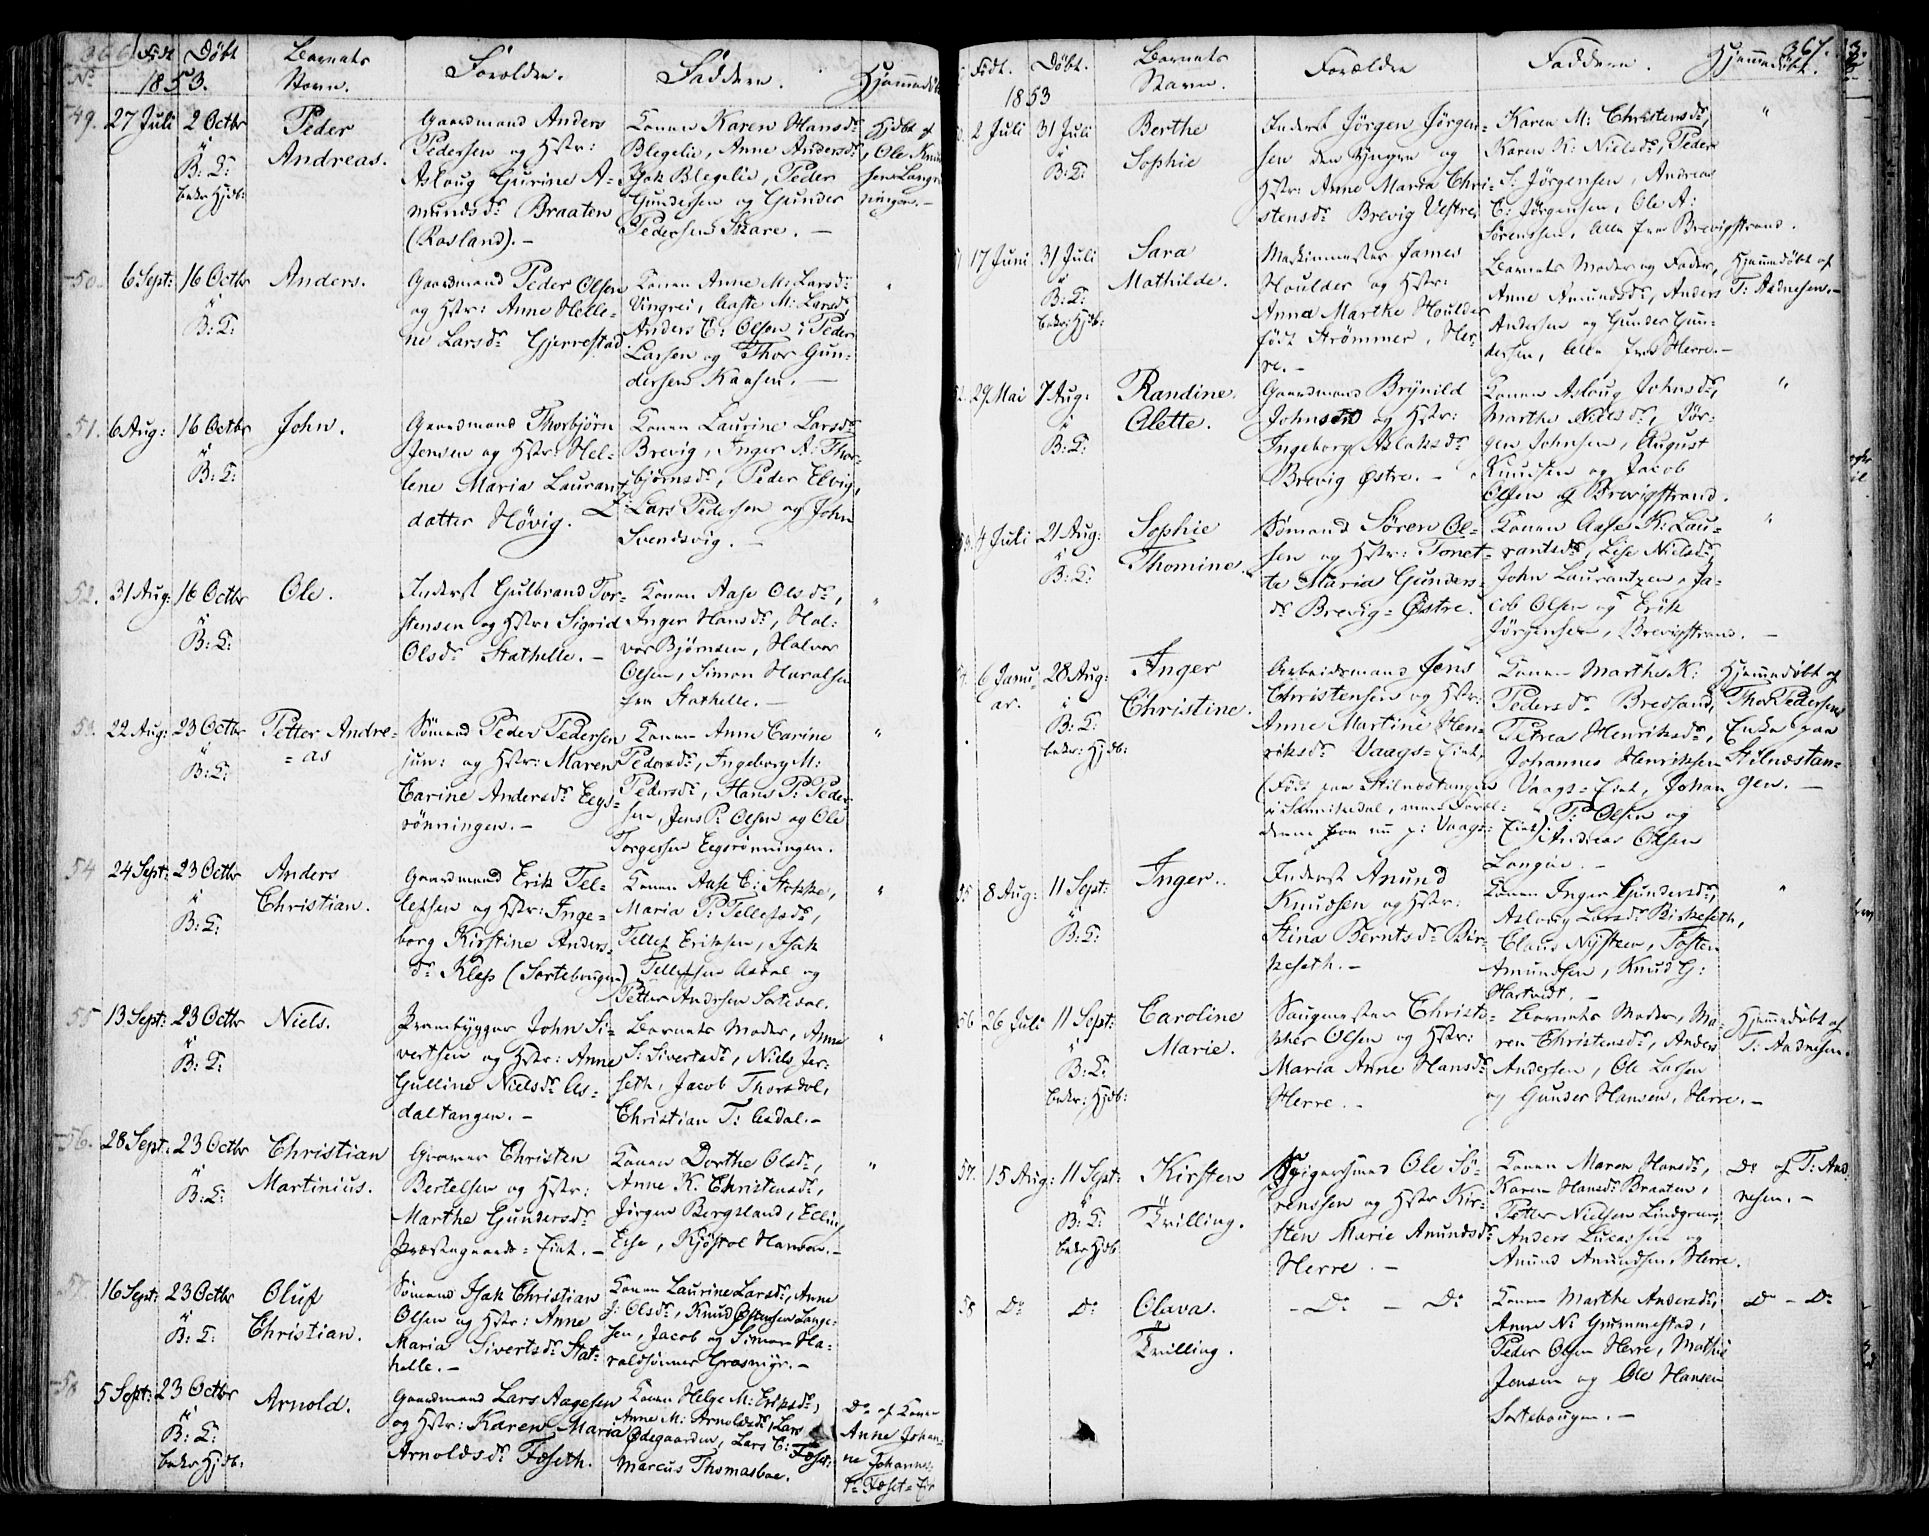 366
No
Født Døbt
1853.
Barnets
Navn.
Forældre.
Faddere.
Hjemmedøbt
49. 27 Juli 2 Octbr
B: T:
bekr Hjdb:
Peder
Andreas.
Gaardmand Anders
Pedersen og Hstr:
Aslaug Gurine A-
mundsdr Braaten
(Rosland). -
Konen Karen Hansdr
Blegelie, Anne Andersdr
Isak Blegelie, Peder
Gundersen og Gunder
Pedersen Skare. -
Hjdbt af
Ole Knud
sen Langrø
ningen. -
50. 6 Sept: 16 Octbr
B: T:
Anders.
Gaardmand Peder Olsen
og Hstr: Anne Helle-
ne Larsdr Gjerrestad
Konen Anne M: Larsdr
Vingrei, Aaste M: Larsdr
Anders C: Olsen, Peder
Larsen og Thor Gun-
dersen Kaasen. -
"
51. 6 Aug: 16 Octbr
B: T:
John.
Gaardmand Thorbjørn
Jensen og Hstr: Hel-
lene Maria Laurants
datter Høvig.
Konen Laurine Larsdr
Brevig, Inger A: Thor-
bjørnsdr, Peder Elvig,
L: Lars Pedersen og John
Svendsvig. -
52. 31 Aug: 16 Octbr
B: T:
Ole.
Inderst Gulbrand Tor-
stensen og Hstr: Sigrid
Olsdr Stathelle. -
Konen Aase Olsdr,
Inger Hansdr, Hal-
vor Bjørnsen, Halvor
Olsen, Simon Haralsen
fra Stathelle. -
"
53. 22 Aug: 23 Octbr
B: T:
Petter Andre-
= as
Sømand Peder Pedersen
jun: og Hstr: Maren
Carine Andersdr Eegs-
rønningen. -
Konen Anne Carine
Pedersdr, Ingeborg M:
Pedersdr, Hans P: Peder-
sen, Jens P: Olsen og Ole
Torgersen Eegsrønningen.
"
54 24 Sept: 23 Octbr
B: T:
Anders
Christian.
Gaardmand Erik Tel-
lefsen og Hstr: Inge-
borg Kirstine Anders-
dr Klep (Sortebougen)
Konen Aase C: Stokke,
Maria P: Tellefsdr,
Tellef Eriksen, Isak
Tellefsen Aasdal og
Petter Andersen Sortedal.
"
55 13 Sept: 23 Octbr
B: T:
Niels.
Prambygger John Si-
vertsen og Hstr: Anne
Gulline Nielsdr As-
daltangen. -
Barnets Moder, Anne
S: Sivertsdr, Niels Jer-
seth, Jacob Thorsdal,
Christian T: Aadal. -
"
56. 28 Sept: 23 Octbr
B: T:
Christian
Martinius.
Graver Christen
Bertelsen og Hstr:
Marthe Gundersdr
Præstegaards = Eiet. -
Konen Dorthe Olsdr,
Anne K. Christensdr,
Jørgen Bergsland,
Kjøstol Hansen. -
"
57. 16 Sept: 23 Octbr
B: T:
Oluf
Christian.
Sømand Isak Christian
Olsen og Hstr: Anne
Maria Sivertsdr Stat-
helle. -
Konen Laurine Larsdr, Anne
J: Olsdr, Knud
sen, Jacob og Simon Ha-
raldsønner Grasmyr. -
58 5 Sept: 23 Octbr
B: T:
bekr Hjdb:
Arnold.
Gaardmand Lars Aagesen
og Hstr: Karen Maria
Arnoldsdr Fæseth.
Konen Helge M: Eriksdr,
Anne M: Arnoldsdr, Lars
Ødegaarden, Lars C: Fæset:
Marcus Thomasboe.
Do af Konen
Anne Johan-
ne Johannes-
dr Fæset = Eie
367.
Født. Døbt.
1853
Barnets
Navn.
Forældre
Faddere.
Hjemmedøbt.
2 Juli 31 Juli
B: T:
Berthe
Sophie
Inderst Jørgen Jørgen-
sen den Yngre og
Hstr: Anne Maria Chri-
stensdr Brevig Vestre.
Karen M: Christensdr,
Karen K: Nielsdr, Peder
S: Jørgensen, Andreas
C: Jørgensen, Ole A:
Sørensen, Alle fra Brevigstrand.
"
17 Juni 31 Juli
B: T:
bekr: Hjdb:
Sara
Mathilde.
Maskinmester James
Houlder og Hstr:
Anna Marthe Houlder
født Strømmer, Her-
re. -
Barnets Moder og Fader,
Anne Amundsdr, Anders
Andersen og Gunder Gun-
dersen, Alle fra Herre. -
Hjemmedøbt af
T: Aadnesen. -
52. 29 Mai 7 Aug:
B: T:
Randine.
Alette.
Gaardmand Brynild
Johnsen og Hstr:
Ingeborg Aslaksdr
Brevig Østre. -
Konen Aslaug Johnsdr,
Marthe Nielsdr, Jør-
gen Johnsen, August
Knudsen og Jacob
Olsen af Brevigstrand.
"
53. 4 Juli 21 Aug:
B: T:
Sophie
Thomine.
Sømand Søren Ol-
sen og Hstr: Tonet-
te Maria Gunders-
dr Brevig = Østre.
Konen Aase K: Lau-
rantsdr, Lise Nielsdr,
John Laurantzen, Ja-
cob Olsen og Erik
Jørgensen, Brevigstrand. -
"
54. 6 Janu-
ar. 28 Aug:
B: T:
bekr: Hjdb:
Inger
Christine.
Arbeidsmand Jens
Christensen og Hstr:
Anne Martine Hen-
riksdr Vaags = Eiet,
(Født paa Stilnæstangen
i Sannikedal, men Foræl-
drene boe nu p: Vaags = Eiet).
Konen Marthe K:
Pedersdr Bredsand,
Petrea Henriksdr,
Johannes Henriksen
Vaags = Eiet, Johan
T: Olsen og
Andreas Olsen
Langøe. -
Hjemmedøbt af
Thor Pedersens
Enke paa
Stilnæstan-
gen. -
55 8 Aug: 11 Sept:
B: T:
Inger.
Inderst Anund
Knudsen og Hstr:
Stina Berntsdr Bir-
keseth. -
Konen Inger Gundersdr,
Aslaug Larsdr Birkeseth,
Claus Nysteen, Tosten
Amundsen, Knud G:
Hartvedt. -
"
56 26 Juli 11 Sept:
B: T:
bekr: Hjdb:
Caroline
Marie.
Saugmester Christo-
pher Olsen og Hstr:
Maria Anne Hansdr
Herre. -
Barnets Moder, Ma-
ren Christensdr, Anders
Andersen, Ole Larsen
og Gunder Hansen, Herre. -
Hjemmedøbt af
T: Aadnesen.
57. 15 Aug: 11 Sept:
B: T:
bekr Hjdb
Kirsten
Tvilling.
Spigersmed Ole Sø-
renssen og Hstr Kir-
sten Marie Anundsdr
Herre. -
Konen Maren Hansdr,
Karen Hansdr Braaten,
Petter Nielsen Lindgren,
Anders Lucassen og
Anund Anundsen, Herre.
Do af T: Aad
nesen. -
58 Do Do
Olava.
Tvilling.
- Do - Do
Konen Marthe Andersdr,
Anne N: Grummestad,
Peder Olsen Herre, Mathis
Jensen og Ole Hansen
Sortebougen. -
Do - Do